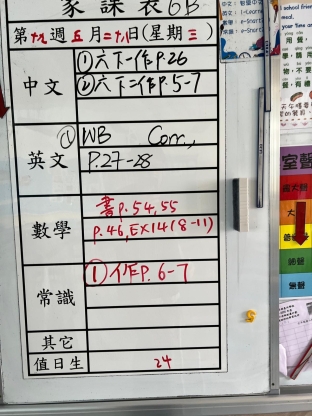 家課表6B
第十九週五月二十八日(星期三)
中文
①六下一作P.26
②六下二作P.5-7
英文
① WB Com.,
P.27-28
數學
書P.54,55
P.46,EX14(8-11)
常識
①作P.6-7
其它
值日生
24
室聲
嘈聲
無聲